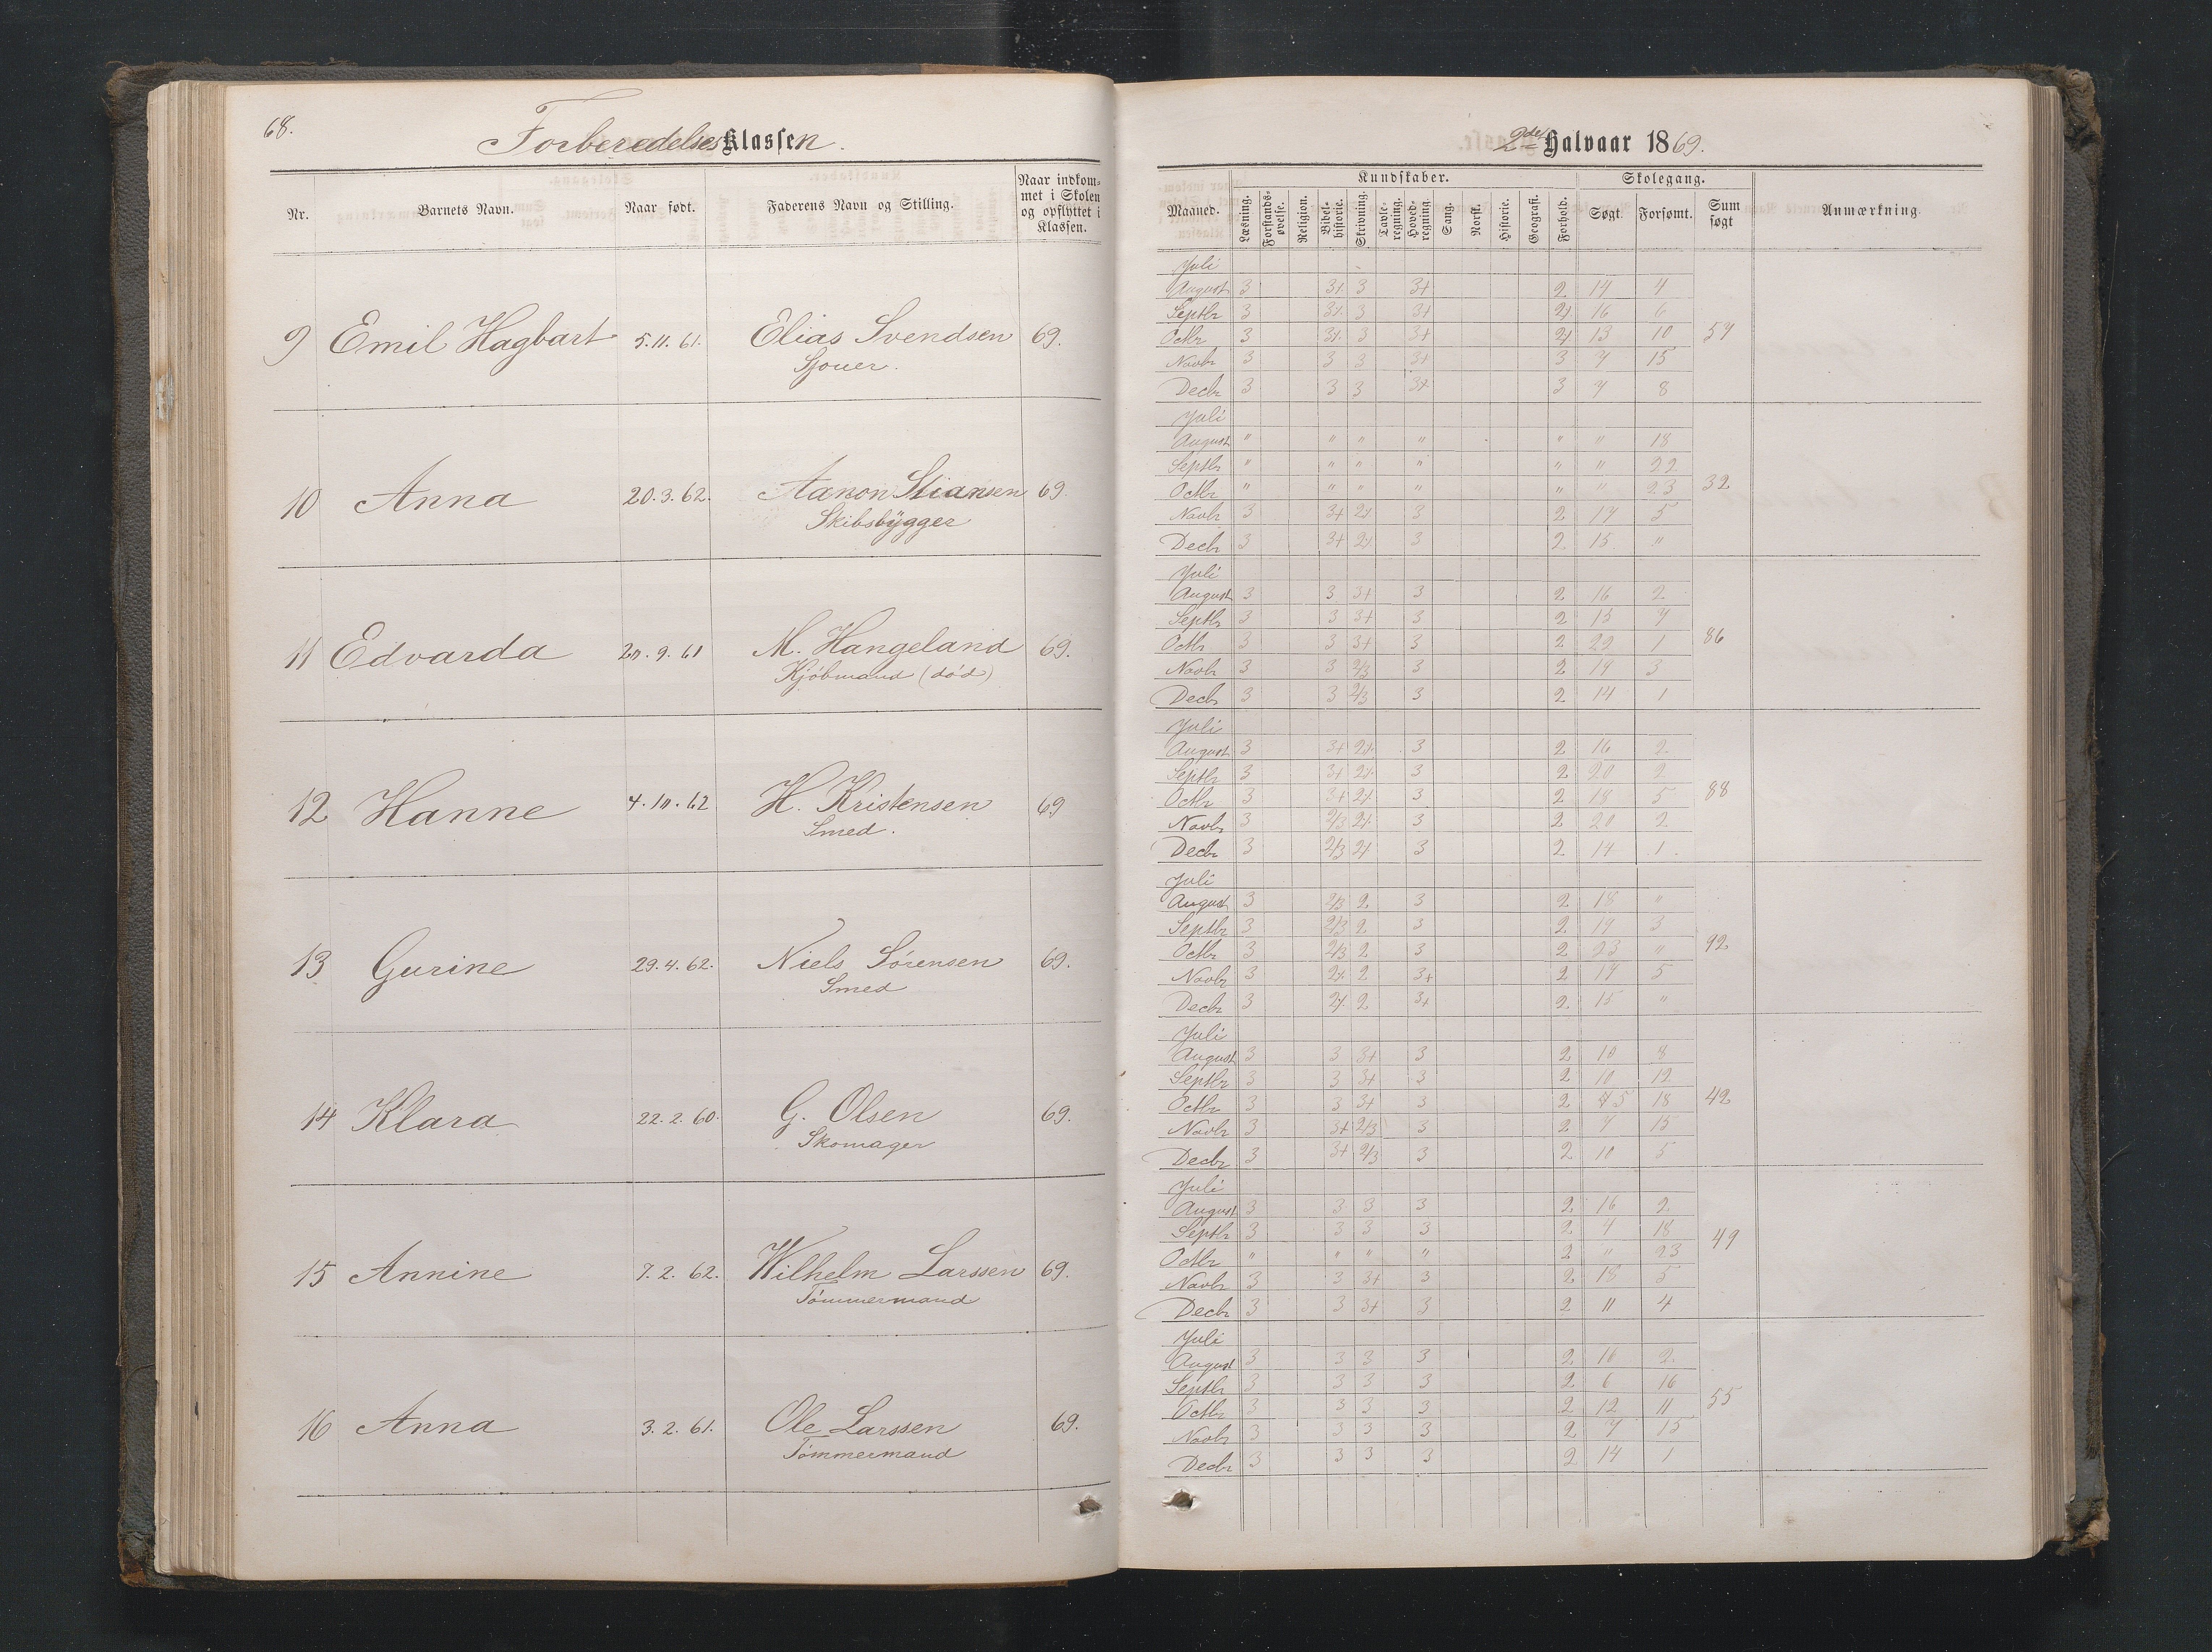 68.
ForberedelsesKlassen.
Nr. Barnets Navn. Naar født. Faderens Navn og Stilling. Naar indkommet i Skolen og opflyttet i Klassen.
9 Emil Hagbart 5.11.61. Elias Svendsen 69.
Sjouer.
10 Anna 20.3.62. Aanon Stiansen 69.
Skibsbygger
11 Edvarda 9.61 M. Hangeland 69.
Kjöbmand (död)
12 Hanne 62 H. Kristensen 69
Smed.
13 Gurine 29.4.62. Niels Sörensen 69.
Smed
14 Klara 22.2.60. G. Olsen 69.
Skomager
15 Annine 7.2.62. Wilhelm Larssen 69.
Tömmermand
16 Anna 3.2.61. Ole Larssen 69.
Tömmermand
2det Halvaar 1869.
Kundskaber. Skolegang.
Maaned. Læsning. Forstandsøvelse. Religion. Bibelhistorie. Skrivning. Tavleregning. Hovedregning. Sang. Norsk. Historie. Geografi. Forhold. Søgt. Forsømt. Sum søgt Anmærkning.
Juli
August 3 3+ 3 3+ 2 14 4
Septbr 3 3+ 3 3+ 2+ 16 6
Octbr 3 3+ 3 3+ 2+ 13 10 57
Novbr 3 3 3 3+ 3 7 15
Decbr 3 3 3 3+ 3 7 8
Juli
August " " " " " " 18
Septbr " " " " " " 22
Octbr " " " " " " 23 32
Novbr 3 3+ 2+ 3 2 17 5
Decbr 3 3+ 2+ 3 2 15 "
Juli
August 3 3 3+ 3 2 16 2
Septbr 3 3 3+ 3 2 15 7
Octbr 3 3 3+ 3 2 22 1 86
Novbr 3 3 2/3 3 2 19 3
Decbr 3 3 2/3 3 2 14 1
Juli
August 3 3+ 2+ 3 2 16 2
Septbr 3 3+ 2+ 3 2 20 2
Octbr 3 3+ 2+ 3 2 18 5 88
Novbr 3 2/3 2+ 3 2 20 2
Decbr 3 2/3 2+ 3 2 14 1
Juli
August 3 2/3 2 3 2 18 "
Septbr 3 2/3 2 3 2 19 3
Octbr 3 2/3 2 3 2 23 " 92
Novbr 3 2+ 2 3+ 2 17 5
Decbr 3 2+ 2 3+ 2 15 "
Juli
August 3 3 3+ 3 2 10 8
Septbr 3 3 3+ 3 2 10 12
Octbr 3 3 3+ 3 2 5 18 42
Novbr 3 3+ 2/3 3 2 7 15
Decbr 3 3+ 2/3 3 2 10 5
Juli
August 3 3 3 3 2 16 2
Septbr 3 3 3 3 2 4 18
Octbr " " " " 2 " 23 49
Novbr 3 3 3+ 3 2 18 5
Decbr 3 3 3+ 3 2 11 4
Juli
August 3 3 3 3 2 16 2
Septbr 3 3 3 3 2 6 16
Octbr 3 3 3 3 2 12 11 55
Novbr 3 3 3 3 2 7 15
Decbr 3 3 3 3 2 14 1